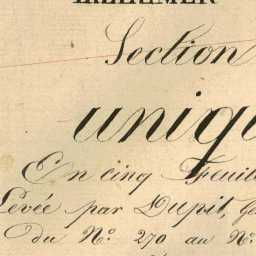 Section
uniq
En cinq Feuil
Levée par Dupit, Gé
Du N.º 270 au N.º